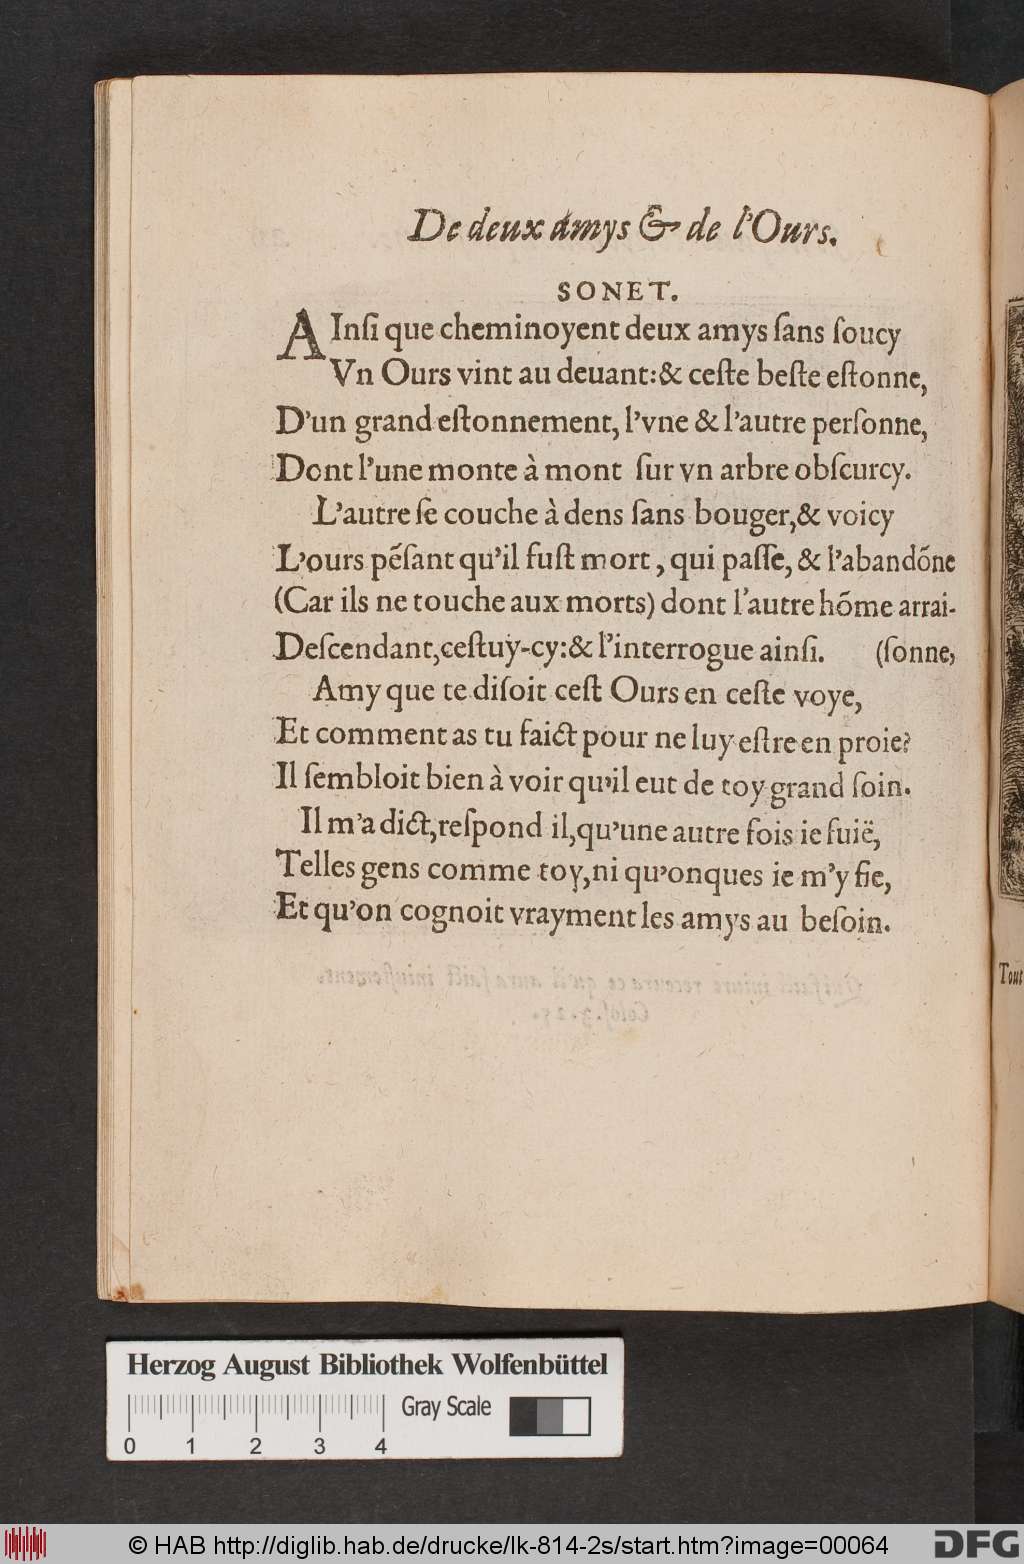 De deux amys & de l'Ours.
SONET.
AInſi que cheminoyent deux amys ſans ſoucy
Vn Ours vint au deuant:& ceſte beſte eſtonne,
D'un grand eſtonnement, l'vne & l'autre perſonne,
Dont l'une monte à mont ſur vn arbre obſcurcy.
L'autre ſe couche à dens ſans bouger,& voicy
L'ours pẽſant qu'il fuſt mort, qui paſſe, & l'abandõne
(Car ils ne touche aux morts) dont l'autre hõme arrai-
Deſcendant,ceſtuy-cy:& l'interrogue ainſi. (ſonne,
Amy que te diſoit ceſt Ours en ceſte voye,
Et comment as tu faict pour ne luy eſtre en proie?
Il ſembloit bien à voir qu'il eut de toy grand ſoin.
Il m'a dict,reſpond il,qu'une autre fois ie fuië,
Telles gens comme toy,ni qu'onques ie m'y fie,
Et qu'on cognoit vrayment les amys au beſoin.
Tout
Herzog August Bibliothek Wolfenbüttel
Gray Scale
0 1 2 3 4
© HAB http://diglib.hab.de/drucke/lk-814-2s/start.htm?image=00064
DFG